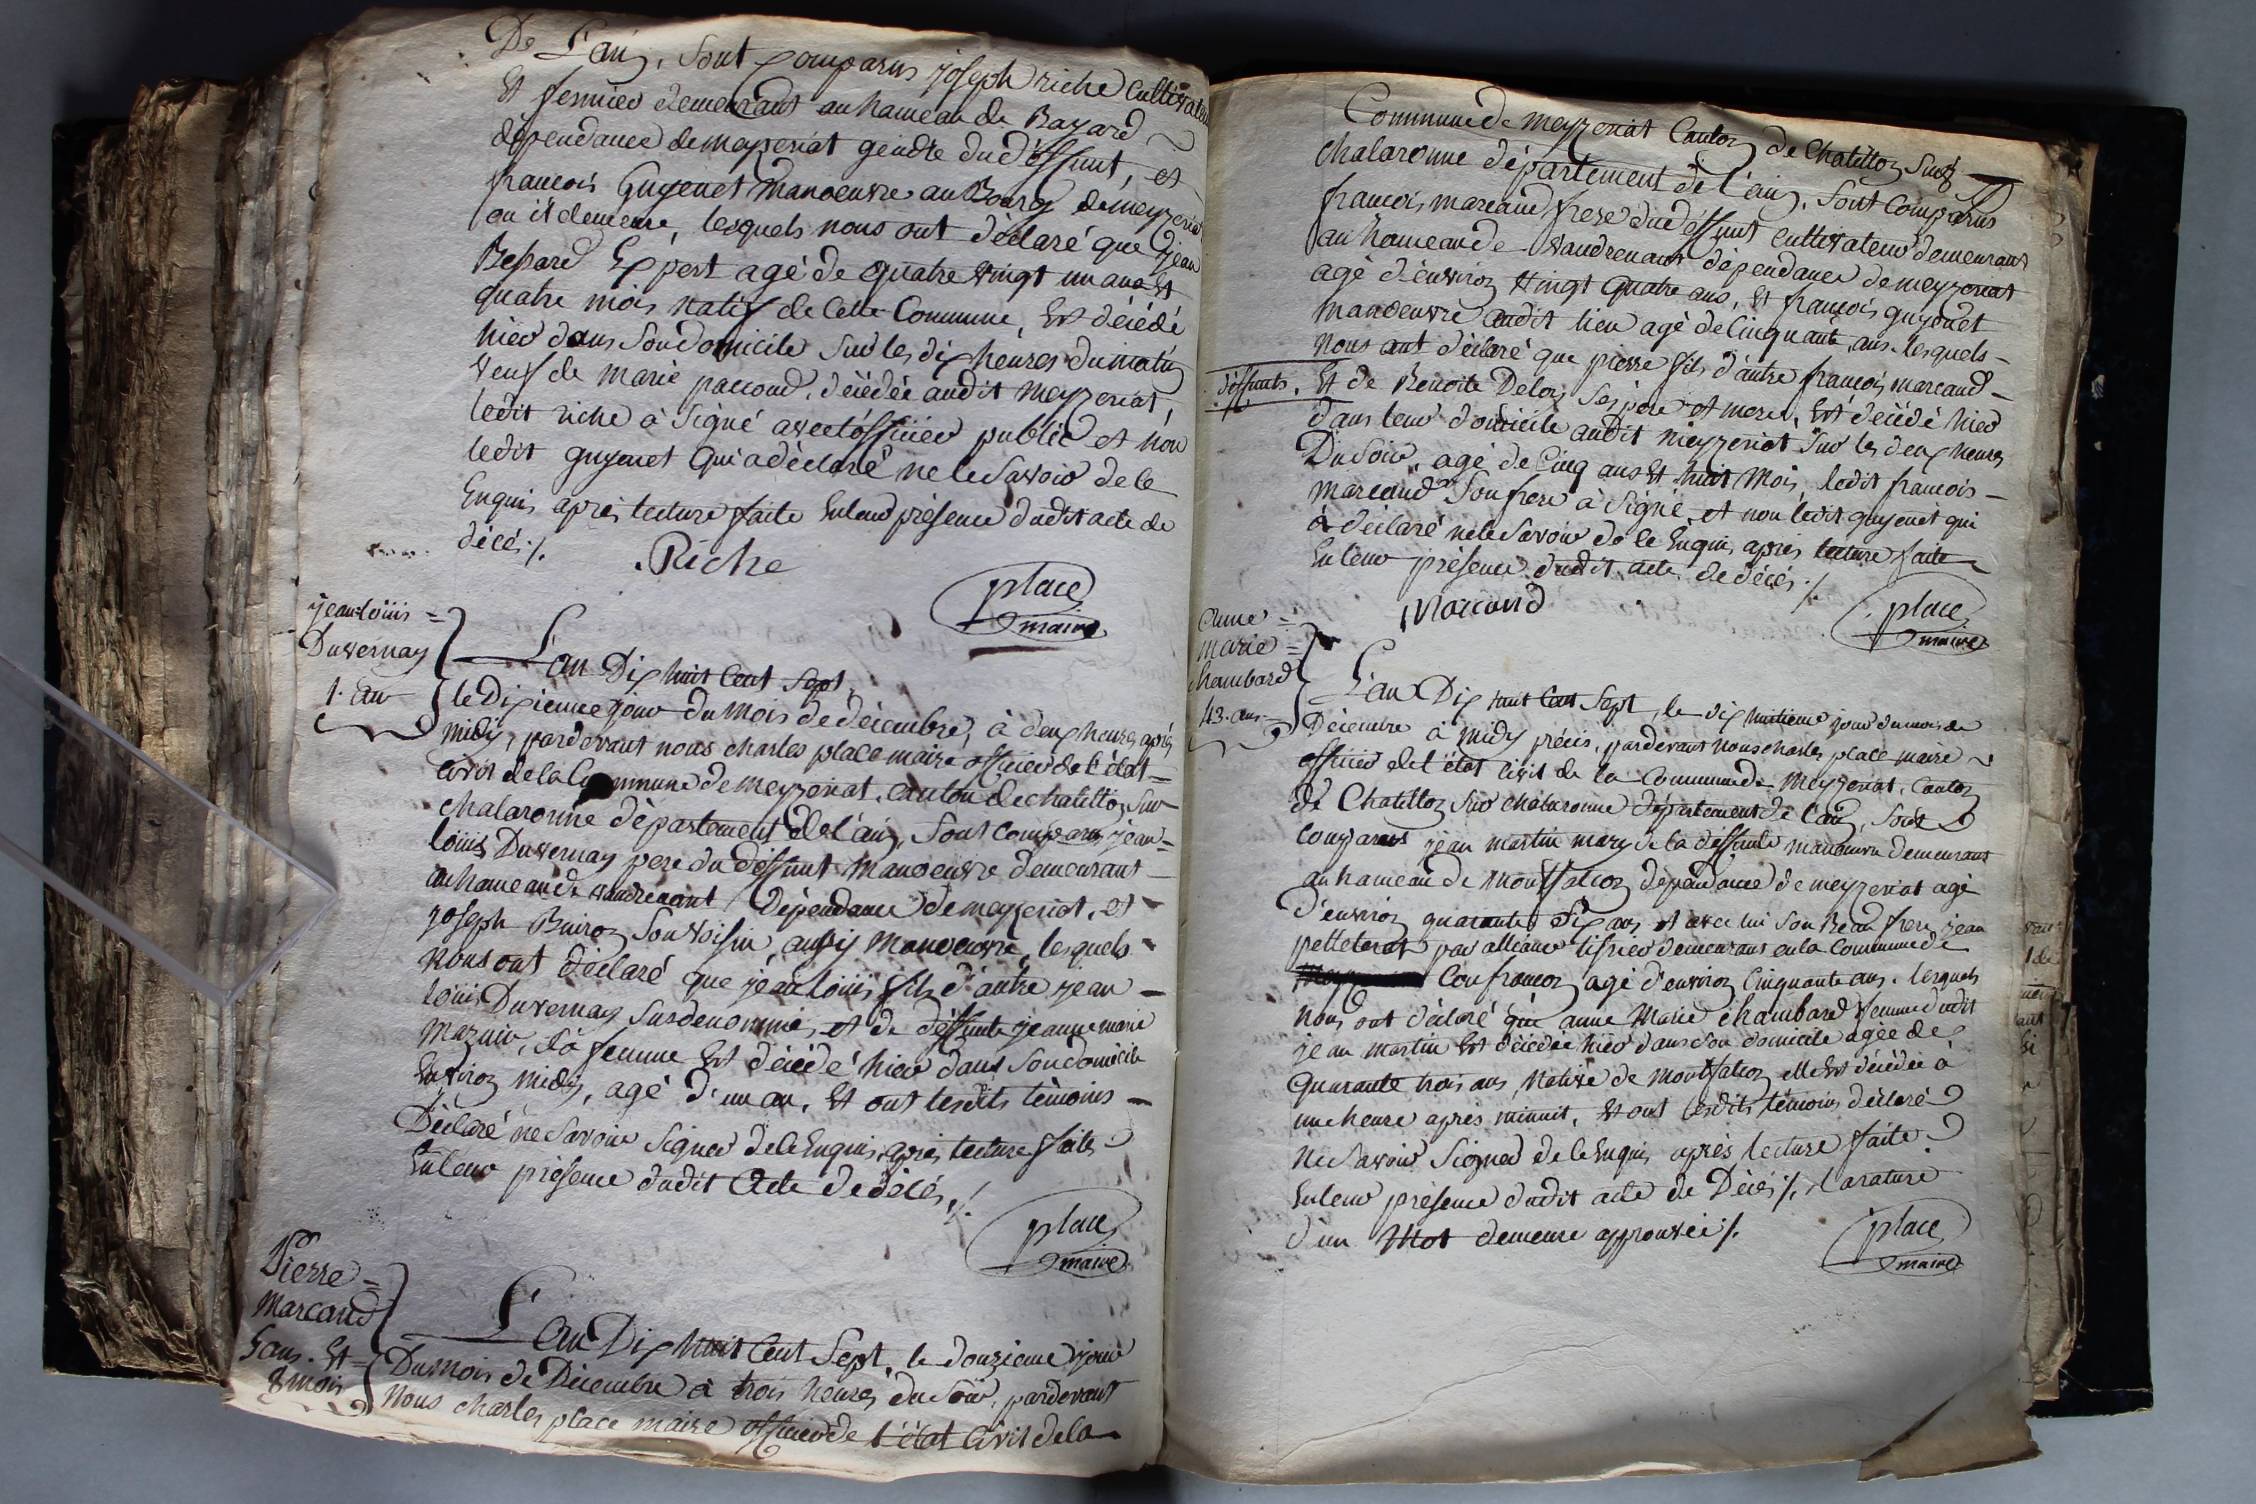 De L'ain, Sont comparus joseph riche cultivateur
Et fermier demeurant au hameau de Bayard
dépendance de meyzeriat gendre du déffunt, et
francois Guyenet Manoeuvre au Bourg de meyzeriat
ou il demeure, lesquels nous ont déclaré que jean
Expert agé de quatre vingt un ans et
quatre mois natif de Cette Commune, Est décédé
hier dans Son domicile Sur les dix heures du matin
veuf de marie paccoud, décédée audit meyzeriat,
ledit riche à Signé avec l'officier public et non
ledit guyenet qui a déclaré ne le Savoir de ce
Enquis après lecture faite En leur présence dudit acte de
décés ./.
Riche
place
maire
jean=louis =
Duvernay
1. an
L'an Dix huit Cent Sept,
le Dixieme jour du Mois de décembre, à deux heures après
midy, pardevant nous charles place maire officier de l'état=
civil de la Commune de meyzeriat, canton de chatillon Sur
chalaronne département de l'ain, Sont comparus jean=
louis Duvernay pere du déffunt Manoeuvre demeurant
au hameau de vaudrenant Dépendance de meyzeriat, et
joseph Buiron Son voisin, aussy Manoeuvre, lesquels
Nous ont déclaré que jean louis fils d'autre jean
louis Duvernay Susdenommé, et de déffunte jeanne marie
Mazuir, Sa femme Est décédé hier dans Son domicile
Environ midy, agé d'un an, Et ont lesdits témoins
Déclaré ne Savoir Signer de ce Enquis après lecture faite
En leur présence dudit Acte de décés ./.
place
maire
Pierre =
Marcaud
5 ans. Et
8 mois
L'an Dix huit Cent Sept, le douzieme jour
Du Mois de Décembre à trois heures du Soir, pardevant
Nous charles place maire officier de l'état Civil de la
Commune de meyzeriat Canton de Chatillon Sur
chalaronne département de l'ain, Sont comparus
francois marcaud frere du déffunt cultivateur demeurant
au hameau de vaudrenant dépendance de meyzeriat
agé d'environ vingt quatre ans, Et francois guyenet
manoeuvre audit lieu agé de Cinquante ans lesquels
nous ont déclaré que pierre fils d'autre francois marcaud
déffunts. Et de Benoite Delorj Ses pere et mere, Est décédé hier
dans leur domicile audit meyzeriat Sur les deux heures
Du Soir, agé de Cinq ans Et huit Mois, ledit francois
marcaud Son frere à Signé et non ledit guyenet qui
à déclaré ne le Savoir de ce Enquis après lecture faite
En leur présence dudit acte de décés ./.
Marcaud
place
maire
anne =
marie =
chambard
43. ans.
L'an Dix huit Cent Sept, le dix huitieme jour du mois de
Décembre à midy précis, pardevant nous charles place maire
officier de l'état Civil de la Commune de Meyzeriat, Canton
de Chatillon Sur chalaronne département de l'ain, Sont
comparus jean martin mary de la déffunte manoeuvre demeurant
au hameau de Montfalcon dépendance de meyzeriat agé
d'environ quarante Six ans, et avec lui Son Beau frere jean
pelleterat par alliance tisSier demeurant en la Commune de
Confrancon agé d'environ Cinquante ans. lesquels
Nous ont déclaré que anne Marie chambard femme dudit
jean martin Est décédée hier dans Son domicile agée de
Quarante trois ans, Native de Montfalcon elle Est décédée à
une heure après minuit, Et ont lesdits témoins déclaré
Ne Savoir Signer de ce Enquis après lecture faite
En leur présence dudit acte de Décés ./. La rature
d'un Mot demeure approuvée ./.
place
maire